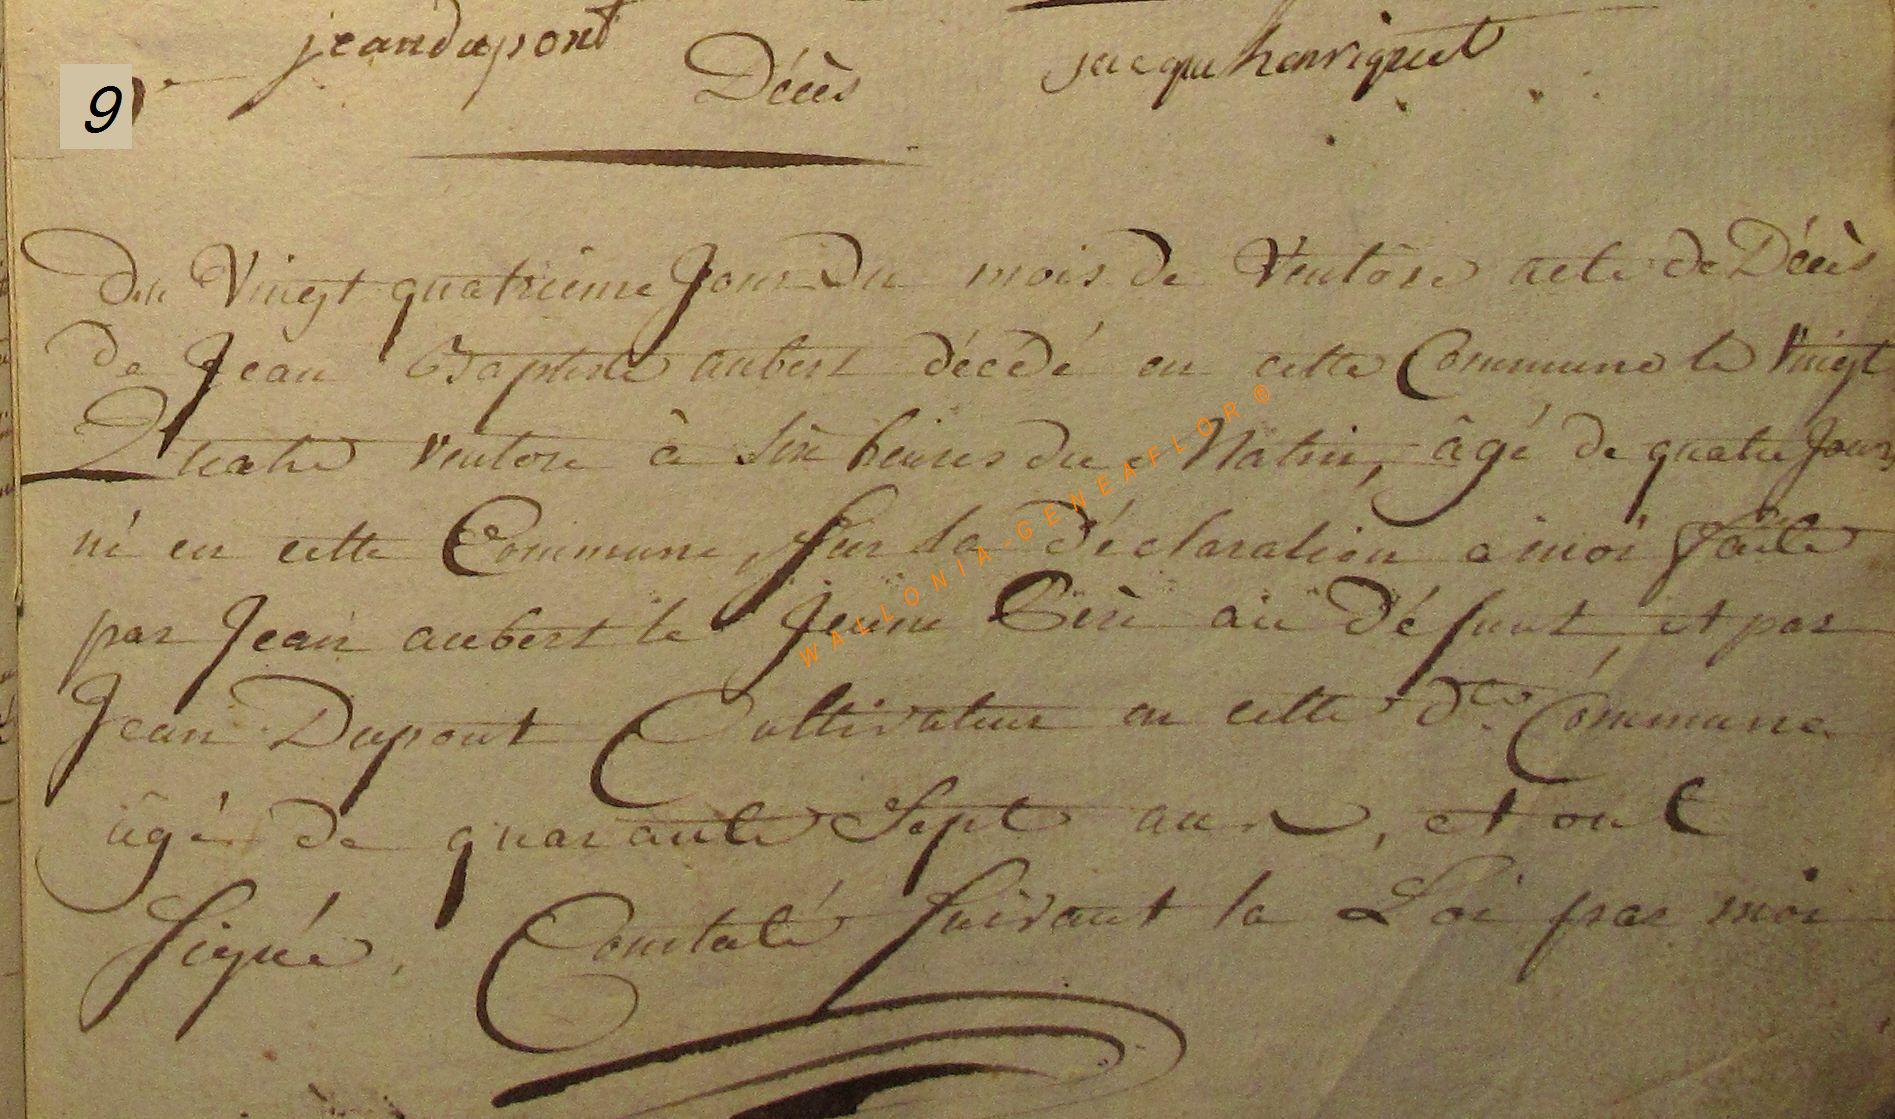 jeandupont
jacque henriquet
Décès
9
Du Vingt quatrieme Jour Du mois de Ventôse acte de Décès
de Jean Baptiste aubert décédé en cette Commune le Vingt
Quatre Ventose à Six heures du Matin, âgé de quatre Jours
né en cette Commune, Sur la déclaration à moi faite
par Jean aubert le Jeune Père au défunt, et par
Jean Dupont Cultivateur en cette dte Commune
âgé de quarante Sept ans, et ont
Signée, Constaté Suivant la Loi par moi
WALLONIA-GENEAFLOR ®